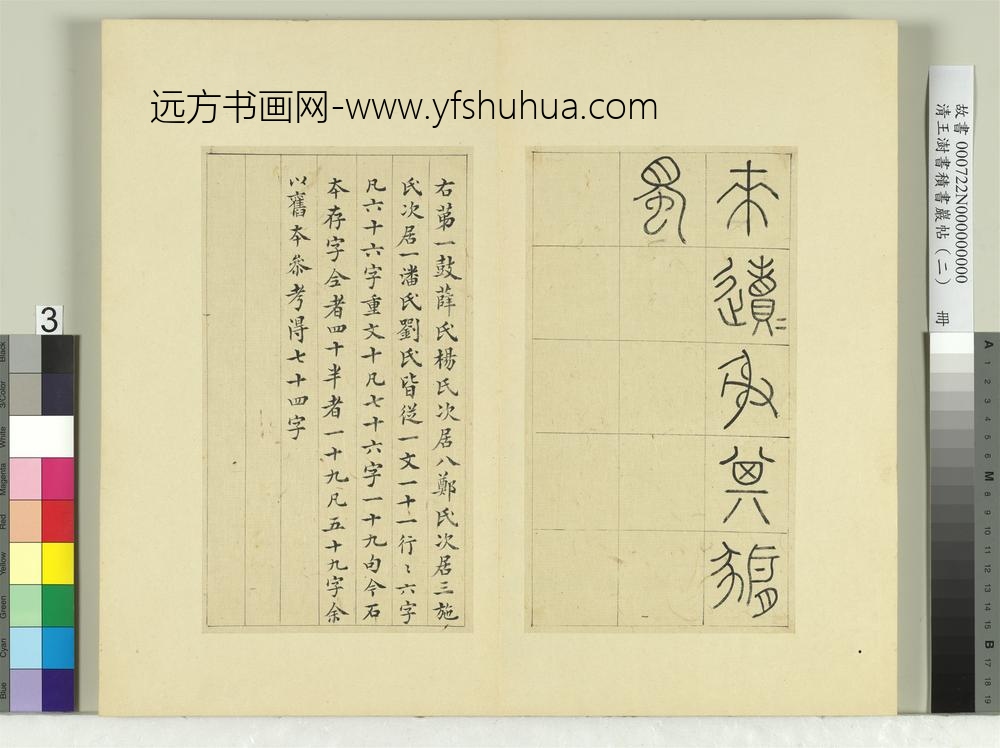 远方书画网-www.yfshuhua.com
故書 000722N000000000
清王澍書積書巖帖（二） 冊
來䢱〻射其豜
蜀
右苐一鼓薛氏楊氏次居八鄭氏次居三施
氏次居一潘氏劉氏皆從一文一十一行〻六字
凡六十六字重文十凡七十六字一十九句今石
本存字全者四十半者一十九凡五十九字余
以舊本叅考得七十四字
3
Black
3/Color
White
Magenta
Red
Yellow
Green
Cyan
Blue
A
1
2
3
4
5
6
M
8
9
10
11
12
13
14
15
B
17
18
19